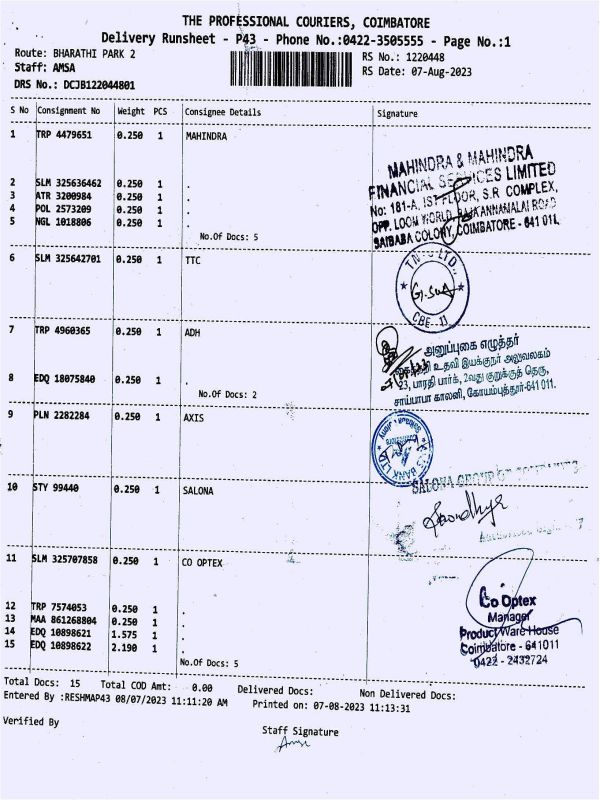 THE PROFESSIONAL COURIERS, COIMBATORE
Delivery Runsheet - P43 - Phone No.:0422-3505555 - Page No.:1
Route: BHARATHI PARK 2 RS No.: 1220448
Staff: AMSA RS Date: 07-Aug-2023
DRS No.: DCJB122044801
S No Consignment No Weight PCS Consignee Details Signature
1 TRP 4479651 0.250 1 MAHINDRA
MAHINDRA & MAHINDRA
FINANCIAL SERVICES LIMITED
No: 181-A, IST FLOOR, S.R. COMPLEX,
OPP. LOOM WORLD, RAJA ANNAMALAI ROAD
SAIBABA COLONY, COIMBATORE - 641 011.
2 SLM 325636462 0.250 1 .
3 ATR 3200984 0.250 1 .
4 POL 2573209 0.250 1 .
5 NGL 1018806 0.250 1 .
No.Of Docs: 5
6 SLM 325642701 0.250 1 TTC
LTD.
CBE - 11
7 TRP 4960365 0.250 1 ADH
அனுப்புகை எழுத்தர்
உதவி இயக்குநர் அலுவலகம்
23, பாரதி பார்க், 2வது குறுக்குத் தெரு,
சாய்பாபா காலனி, கோயம்புத்தூர்-641 011.
8 EDQ 18075840 0.250 1 .
No.Of Docs: 2
9 PLN 2282284 0.250 1 AXIS
BANK LTD
10 STY 99440 0.250 1 SALONA
SALONA GROUP OF
11 SLM 325707858 0.250 1 CO OPTEX
Co Optex
Manager
Product Ware House
Coimbatore - 641011
0422 - 2432724
12 TRP 7574053 0.250 1 .
13 MAA 861268804 0.250 1 .
14 EDQ 10898621 1.575 1 .
15 EDQ 10898622 2.190 1 .
No.Of Docs: 5
Total Docs: 15 Total COD Amt: 0.00 Delivered Docs: Non Delivered Docs:
Entered By :RESHMAP43 08/07/2023 11:11:20 AM Printed on: 07-08-2023 11:13:31
Verified By Staff Signature